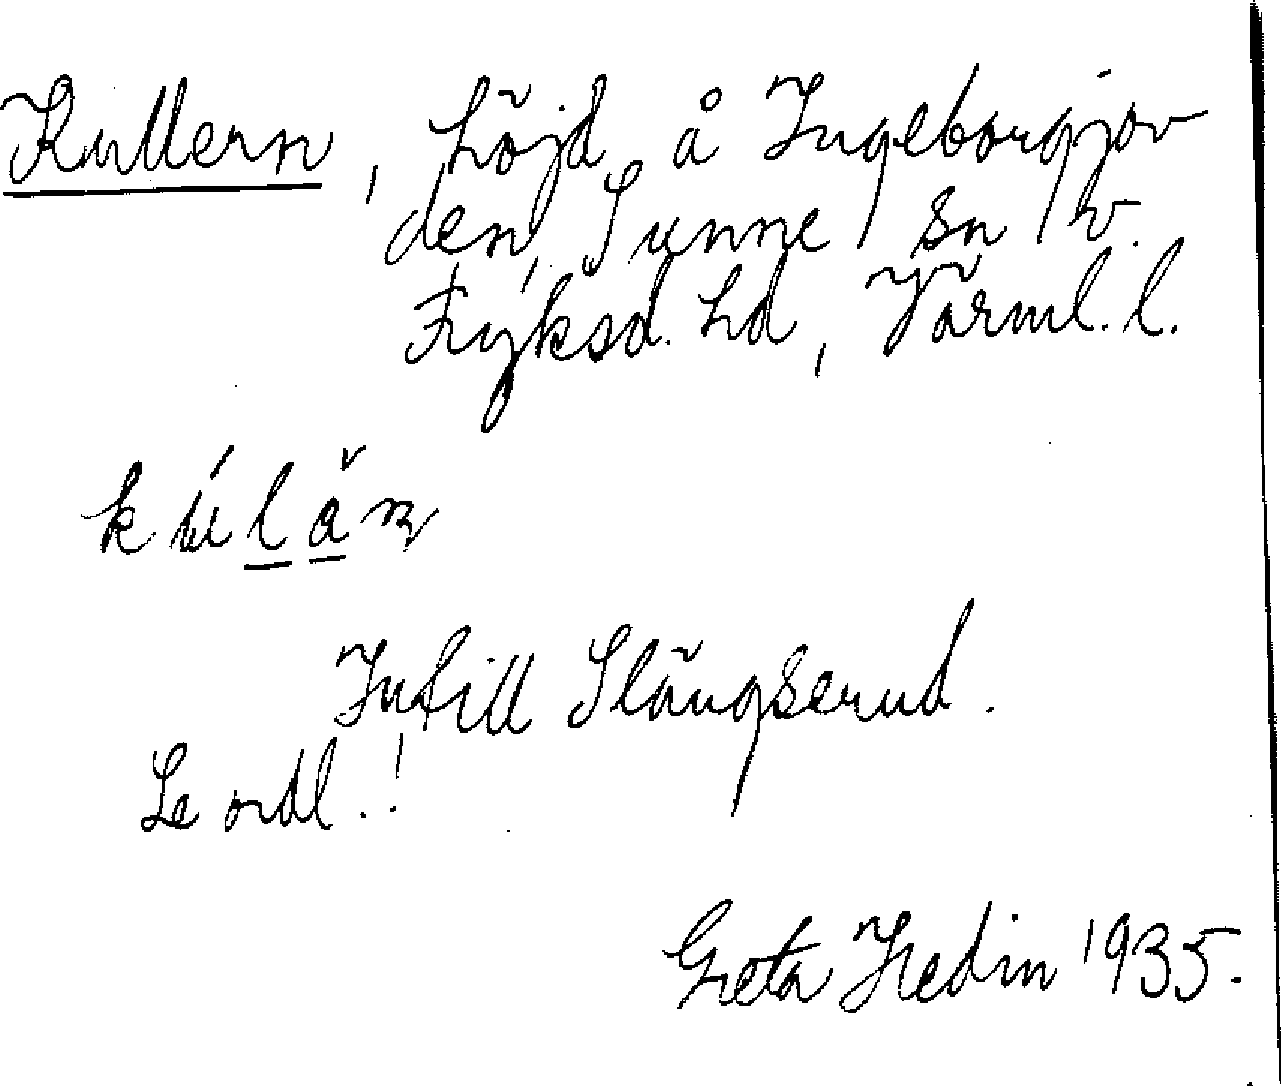 Kullern, höjd å Ingeborgjor
den, Sunne sn v.
Fryksd. hd, Värml. l.
kúlăn
Intill Slängserud.
Se ordl.!
Greta Hedin 1935.